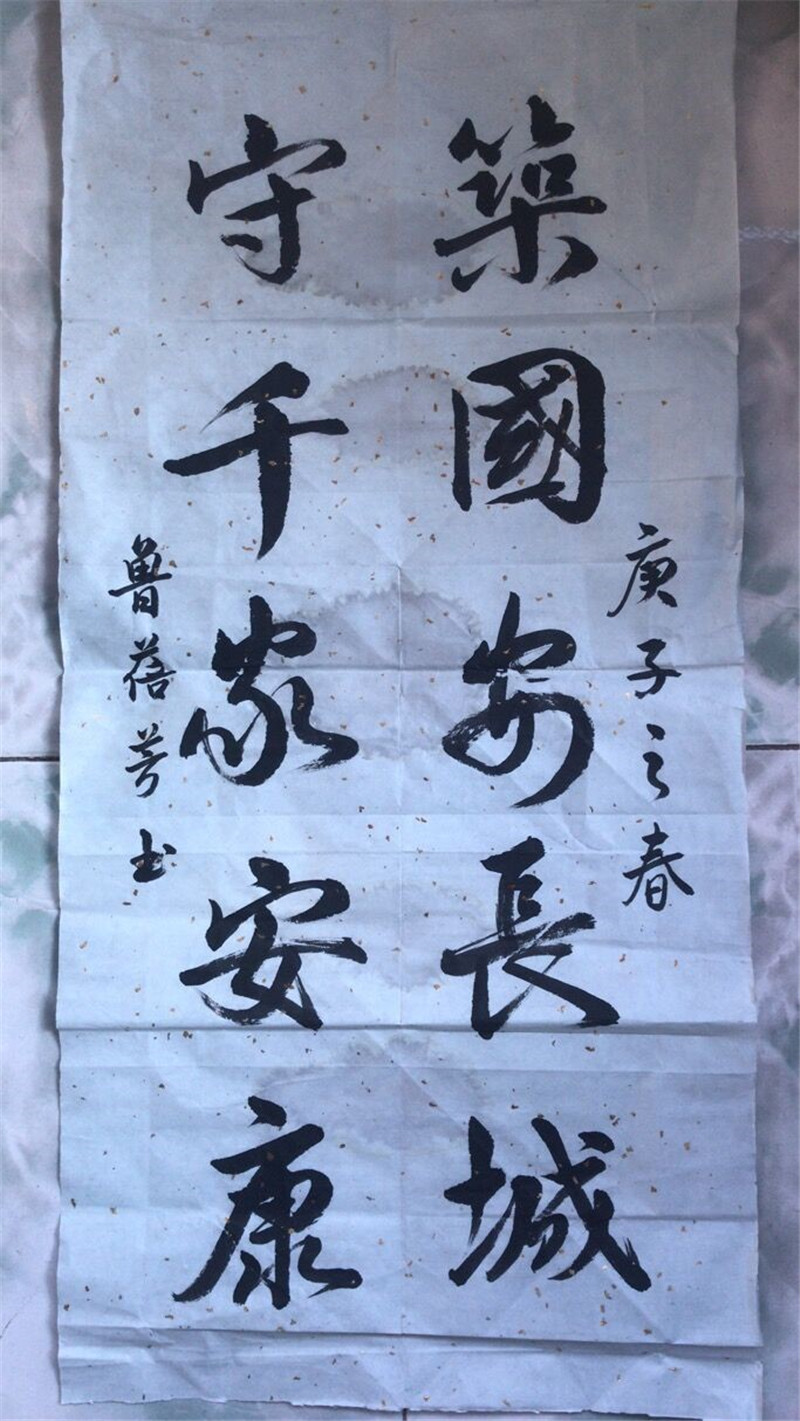 庚子之春
築國安長城
守千家安康
魯蓓芳书